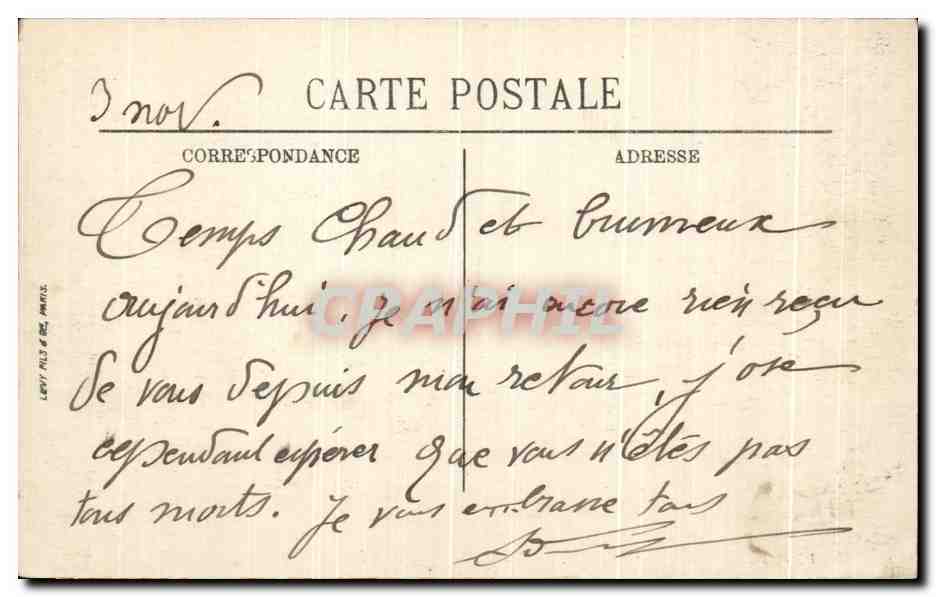 3 nov.
CARTE POSTALE
CORRESPONDANCE
ADRESSE
Temps chaud et brumeux
aujourd'hui. je n'ai encore rien reçu
de vous depuis mon retour, j'ose
cependant espérer que vous n'êtes pas
tous morts. je vous embrasse tous
LEVY FILS & CIE, PARIS.
CPAPHIL